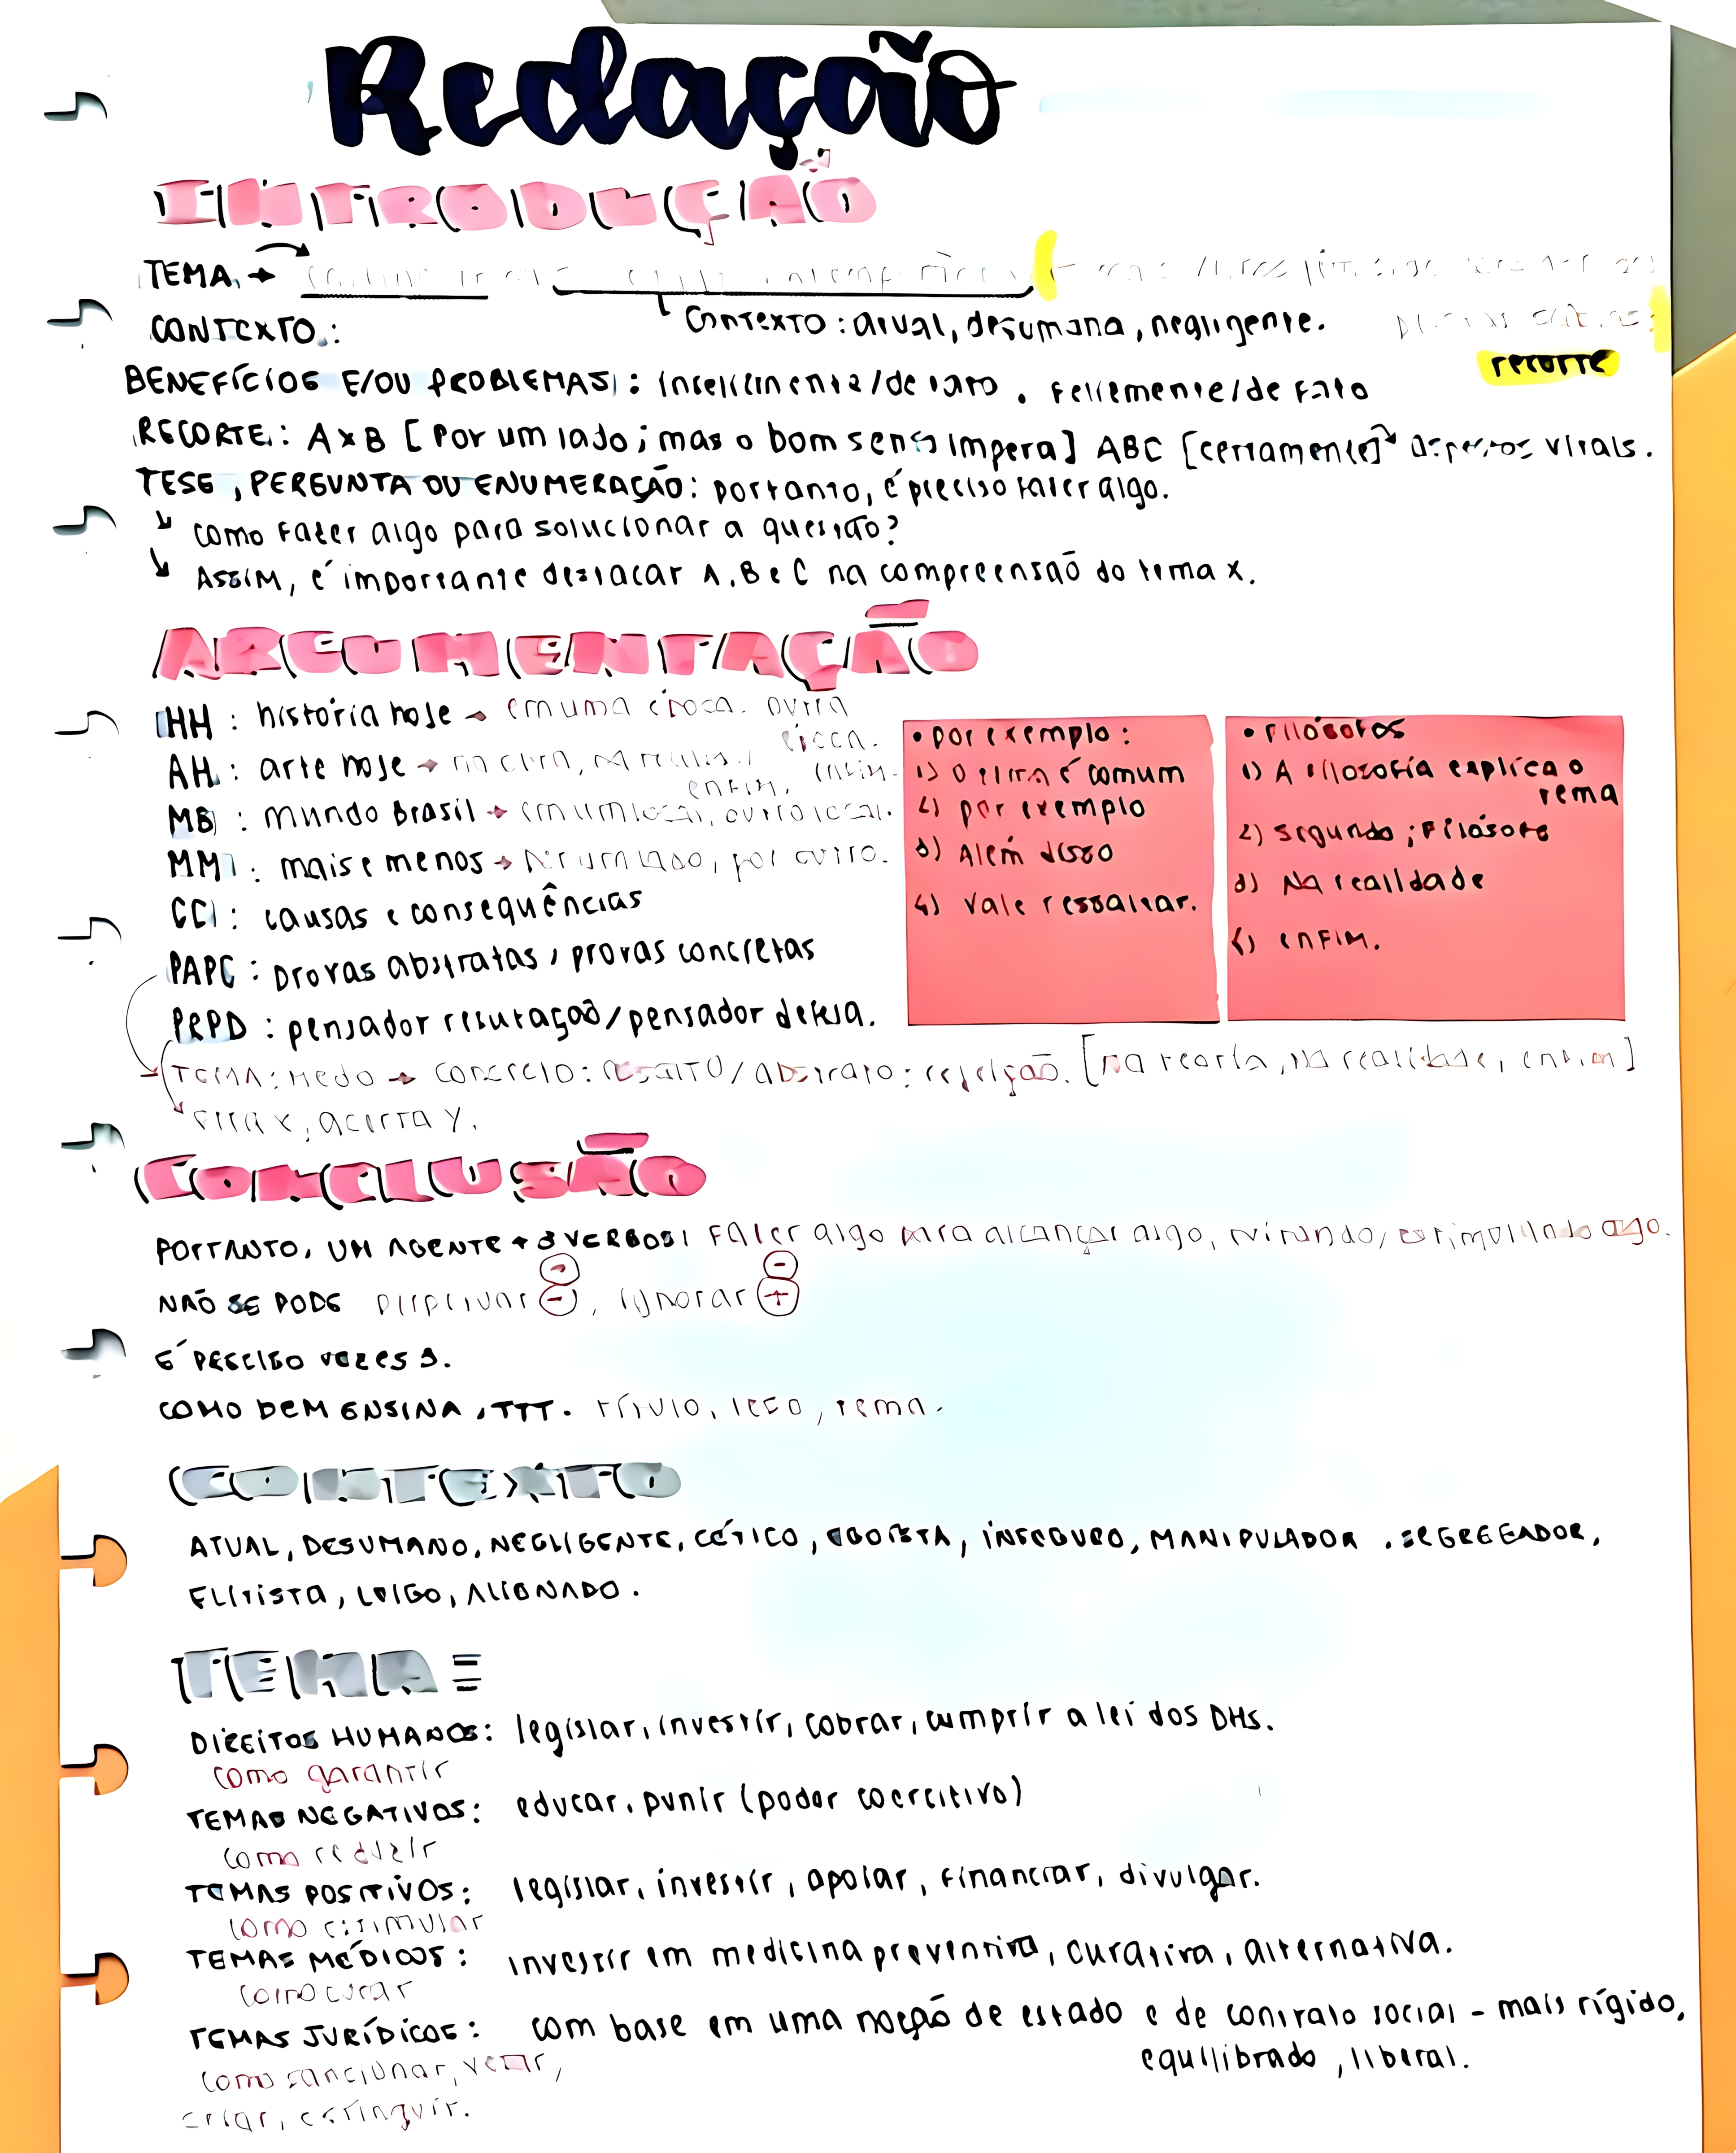 Redação
INTRODUÇÃO
TEMA →
CONTEXTO: atual, desumana, negligente.
CONTEXTO:
recorte
BENEFÍCIOS E/OU PROBLEMAS: infelizmente/de fato. felizmente/de fato
RECORTE: A x B [por um lado; mas o bom senso impera] ABC [certamente] aspectos virais.
TESE, PERGUNTA OU ENUMERAÇÃO: portanto, é preciso fazer algo.
↳ como fazer algo para solucionar a questão?
↳ Assim, é importante destacar A, B e C na compreensão do tema x.
ARGUMENTAÇÃO
HH: história hoje → em uma época. outra
época.
AH: arte hoje →
enfim. enfim.
MB: mundo Brasil → em um local, outro local.
MM: mais e menos → por um lado, por outro.
CC: causas e consequências
PAPC: provas abstratas, provas concretas
PRPD: pensador refutação/pensador defesa.
• por exemplo:
1) O é comum
2) por exemplo
3) Além disso
4) vale ressaltar.
• Filósofos
1) A filosofia explica o
tema
2) segundo; filósofo
3) Na realidade
4) enfim.
TEMA: MEDO → concreto: assalto/abstrato: rejeição. [na teoria, na realidade, enfim]
erra x, acerta y.
CONCLUSÃO
PORTANTO, UM AGENTE + 3 VERBOS: fazer algo para alcançar algo, visando/estimulando algo.
NÃO SE PODE perpetuar -, ignorar +
É PRECISO vezes 3.
COMO BEM ENSINA, TTT. título, tese, tema.
CONTEXTO
ATUAL, DESUMANO, NEGLIGENTE, CÉTICO, EGOÍSTA, INSEGURO, MANIPULADOR, SEGREGADOR,
ELITISTA, LEIGO, ALIENADO.
TEMA =
DIREITOS HUMANOS: legislar, investir, cobrar, cumprir a lei dos DHs.
como garantir
TEMAS NEGATIVOS: educar, punir (poder coercitivo)
como reduzir
TEMAS POSITIVOS: legislar, investir, apoiar, financiar, divulgar.
como estimular
TEMAS MÉDICOS: investir em medicina preventiva, curativa, alternativa.
como curar
TEMAS JURÍDICOS: com base em uma noção de estado e de contrato social - mais rígido,
equilibrado, liberal.
como sancionar, vetar,
criar, extinguir.